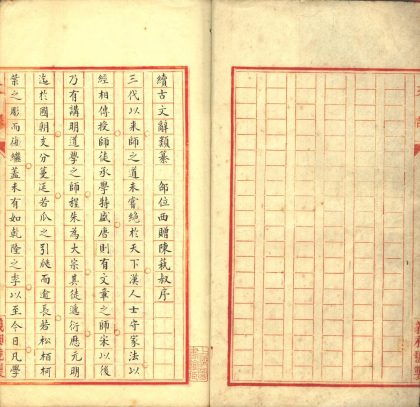 續古文辭類纂　邵位西贈陳蓺叔序
三代以來師之道未嘗絕於天下漢人士守家法以
經相傳授師徒承學特盛唐則有文章之師宋以後
乃有講明道學之師程朱為大宗其徒遞衍應元明
於國朝支分蔓延若瓜之引瓞而逾長若松栢柯
葉之彫而復繼蓋未有如乾隆之季以至今日凡學